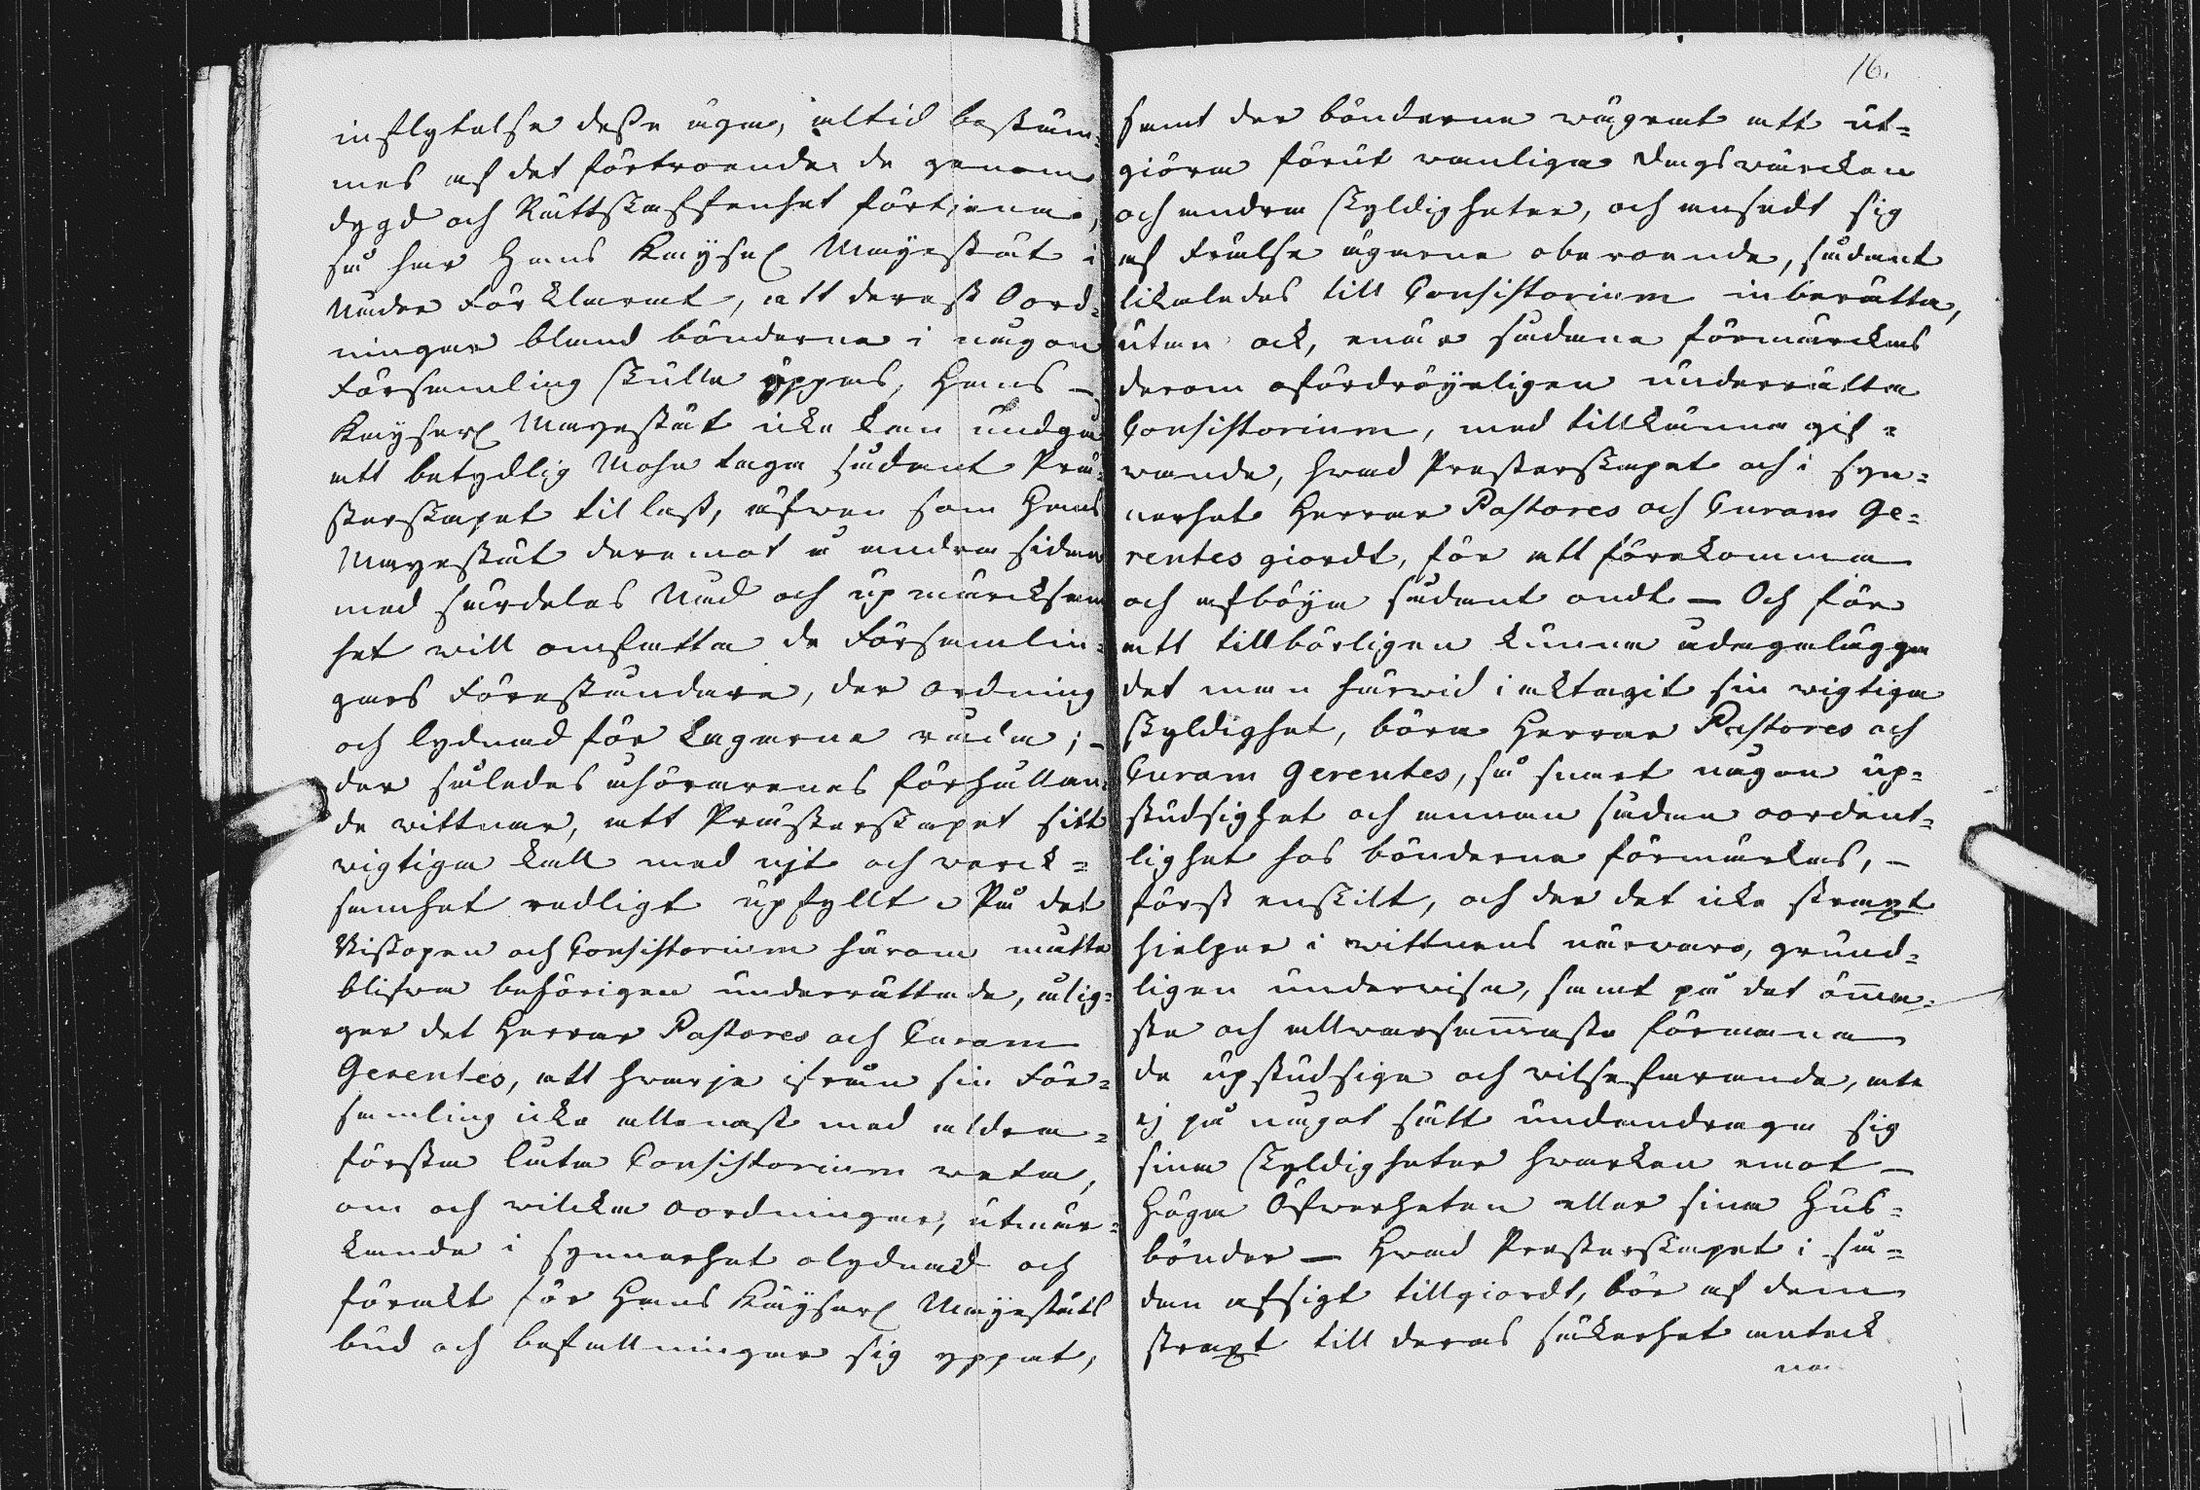 inflytelse desse äga, altid bestäm¬
mes af det förtroende de genom
dygd och Rättskaffenhet förtjena,
så har Hans Kayserl Mayestät i
Nåder Förklarat, att derest Oord¬
ningar bland bönderne i någon
Församling skulle yppas, Hans —
Kayserl Mayestät icke kan undgå
att betydlig Mohn laga sådant Prä¬
sterskapet til last, äfwen som Hans
Mayestät deremot å andra sidan
med särdeles Nåd och upmärcksam
het will omfatta de Församlin¬
gars Föreståndare, der ordning
och lydnad för Lagarne råda; —
der således åhörarenes förhållan¬
de wittnar, att Prästerskapet sitt
wigtiga kall med nit och werck¬
samhet redligt upfyllt. På det
Biskopen och Consistorium härom måtte
blifwa behörigen underrättade, ålig¬
ger det Herrar Pastores och Curam
Gerentes, att hwarje ifrån sin För¬
samling icke allenast med aldra¬
första låta Consistorium weta,
om och wilcka oordningar, utmär¬
kande i synnerhet olydnad och
förakt för Hans Kayserl Mayestäts
bud och befallningar sig yppat,
16.
samt der bönderne wägrat att ut¬
giöra förut wanliga dagswärcken
och andra skyldigheter, och ansedt sig
af Frälse ägarne oberoende, sådant
likaledes till Consistorium inberätta,
utan ock, enär sådane förmärckas
derom ofördröyeligen underrätta
Consistorium, med tillkänna gif¬
wande, hwad Presterskapet och i syn¬
nerhet Herrar Pastores och Curam Ge¬
rentes giordt, för att förekomma
och afböya sådant ondt — Och för
att tillbörligen kunna ådagalägga
det man härwid iakttagit sin wigtiga
skyldighet, böra Herrar Pastores och
Curam Gerentes, så snart någon up¬
studsighet och annan sådan oordent¬
lighet hos bönderne förmärkas, —
först enskilt, och der det icke straxt
hielper i wittnens närwaro, grund¬
ligen underwisa, samt på det ömma¬
ste och allwarsammaste förmana
de upstudsiga och wilsefarande, att
ej på något sätt undandraga sig
sina skyldigheter hwarken emot —
höga Öfwerheten eller sina Hus¬
bönder — Hwad Presterskapet i så¬
dan afsigt tillgiordt, bör af dem
straxt till deras säkerhet anteck
na